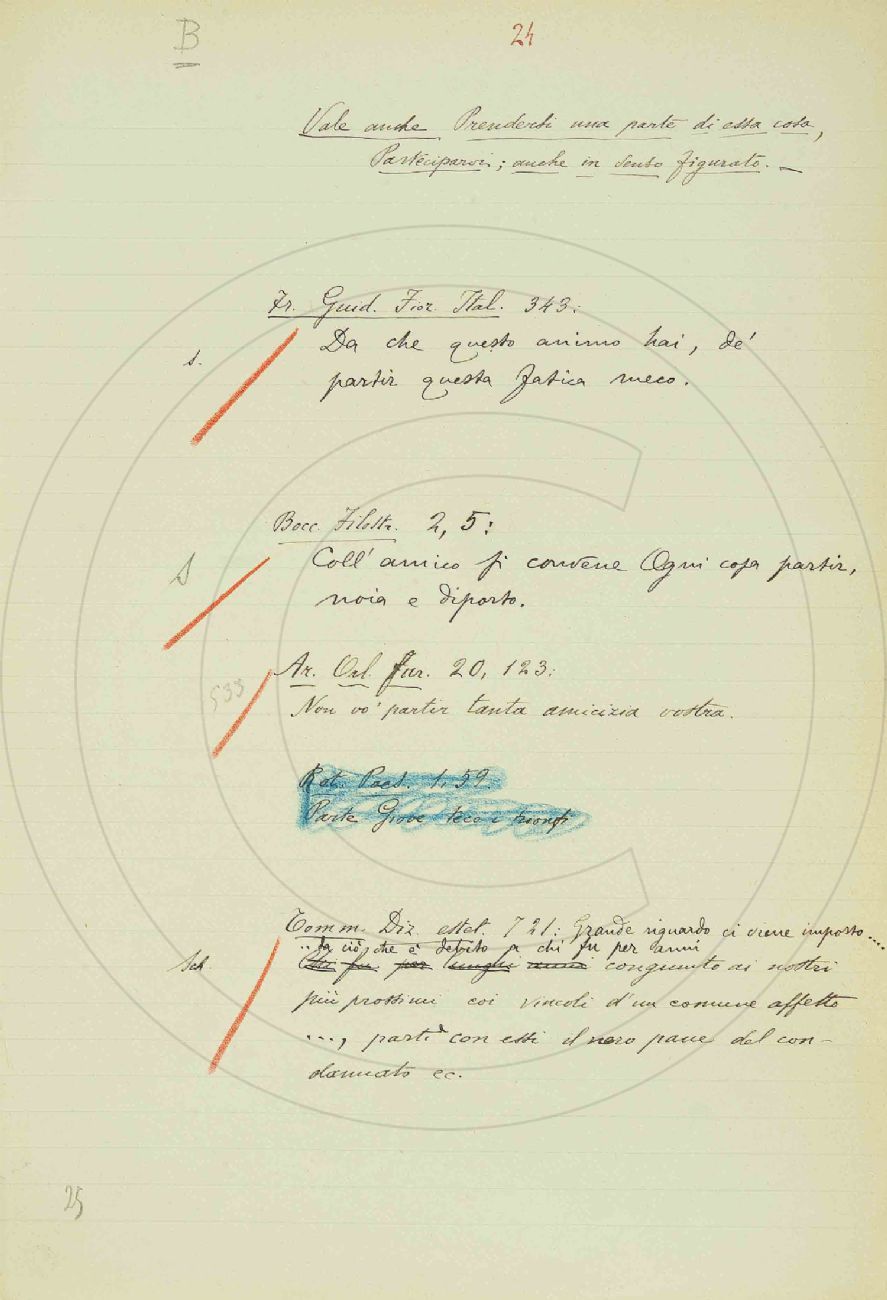 B
24
Vale anche Prendersi una parte di essa cosa,
Parteciparvi; anche in senso figurato. —
Fr. Guid. Fior. Ital. 343:
s.
Da che questo animo hai, de'
partir questa fatica meco.
Bocc. Filostr. 2, 5:
S
Coll' amico si convene Ogni cosa partir,
noia e diporto.
Ar. Orl. fur. 20, 123:
533
Non vo' partir tanta amicizia vostra.
Ret. Poes. 1, 59.
Parte Giove teco i trionfi
Tomm. Diz. estet. 721: Grande riguardo ci viene imposto ....
... da ciò che è debito a chi fu per anni
Sch
chi fu per lunghi anni congiunto ai nostri
più prossimi coi vincoli d'un comune affetto
..., partì con essi il nero pane del con-
dannato ec.
25